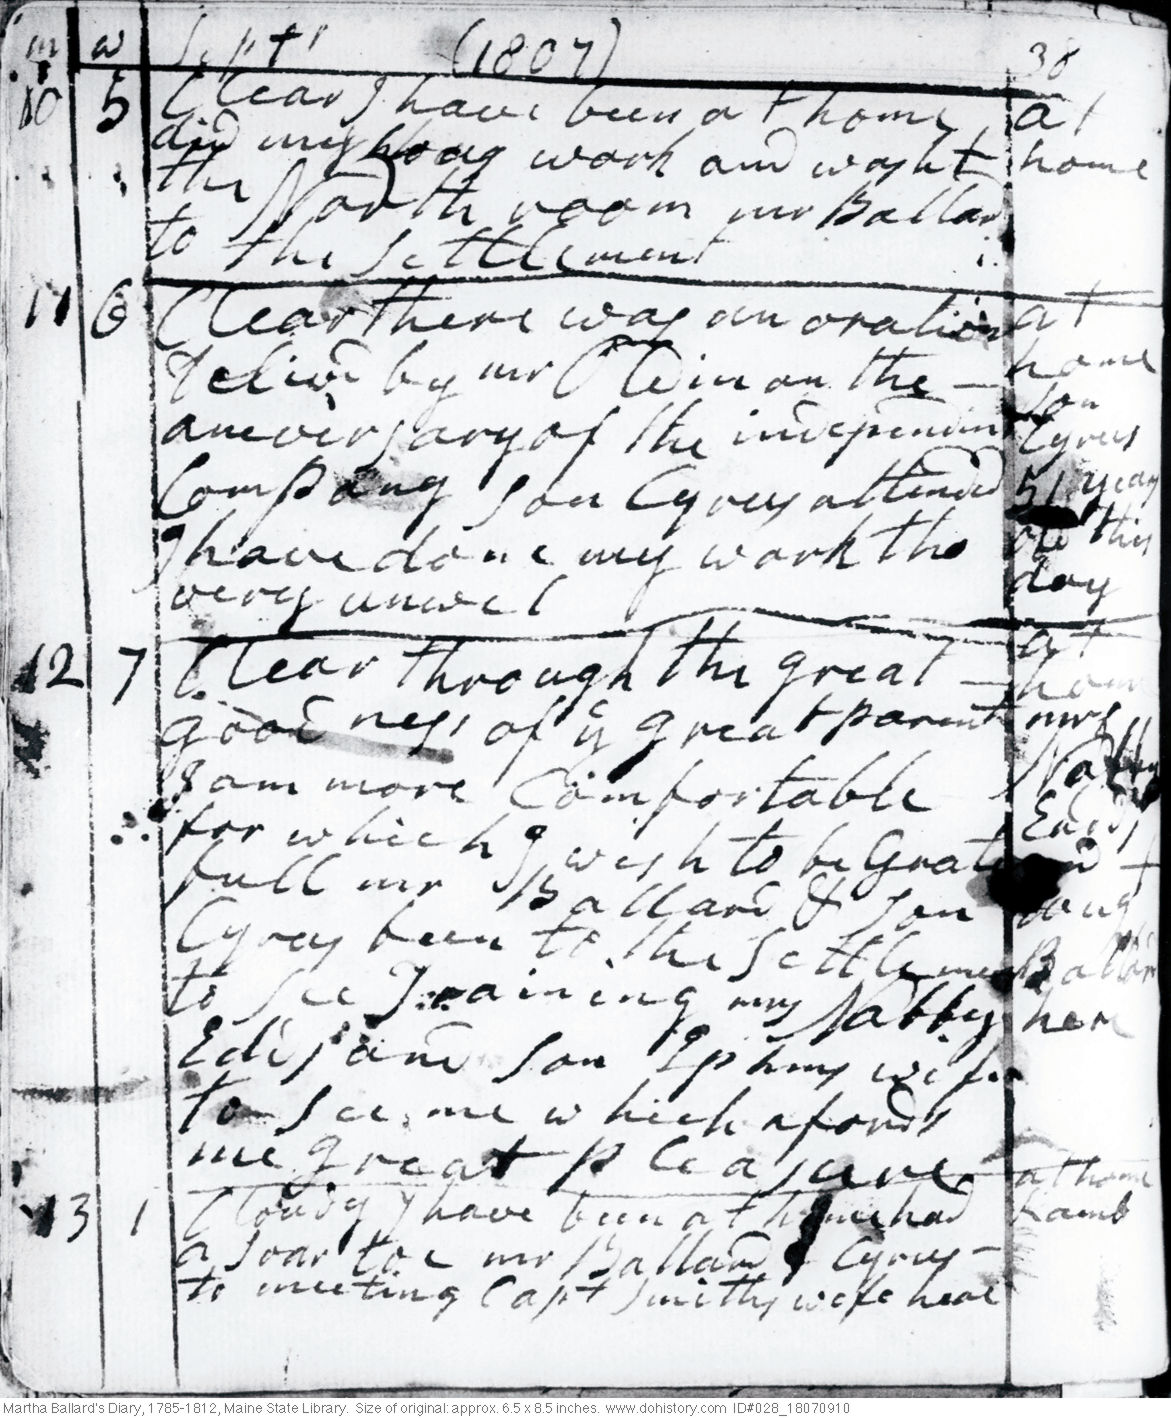 m w Sept r (1807) 38
10 5 Clear I have been at home at
did my houss work and washt home
the North room mr Ballard
to the settlement
11 6 Clear there was an oration at
delivd by mr Oldin on the – home
aneversary of the independent son
Company son Cyrus attended Cyrus
I have done my work tho 51 years
very unwel old this
day
12 7 Clear through the great – at home
good ness of ye great parent mrs
I am more Comfortable Nabby
for which I wish to be Grate Edds
full mr Ballard & son and
Cyrus been to the settlement
to see Training mrs Nabby Ballard
Edds and son Ephms wife here
to see me which afords
me great pleasure
13 1 Cloudy I have been at home had at home
a soar toe mr Ballard & Cyrus – Lamb
to meeting Capt Smiths wife here
Martha Ballard's Diary, 1785-1812, Maine State Library. Size of original: approx. 6.5 x 8.5 inches. www.dohistory.com ID#028_18070910